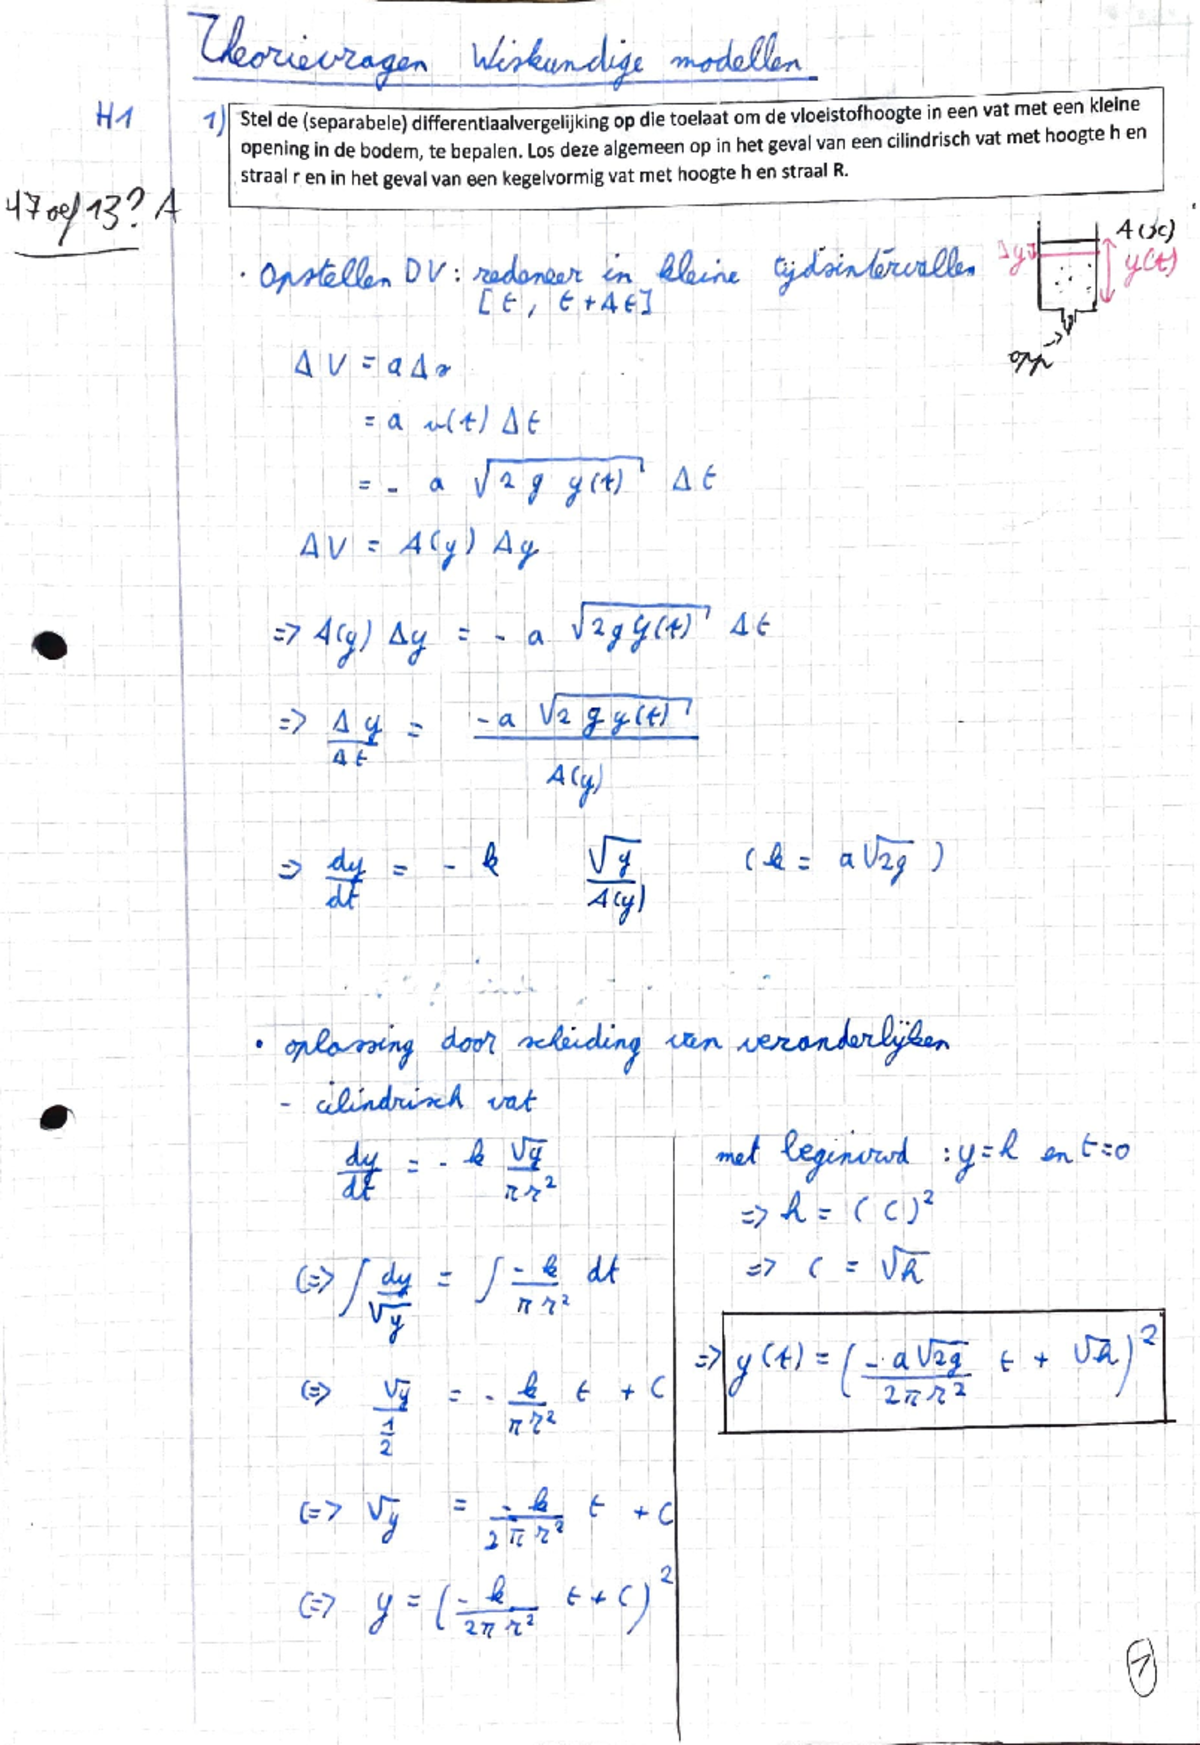 Theorievragen Wiskundige modellen
H1
1) Stel de (separabele) differentiaalvergelijking op die toelaat om de vloeistofhoogte in een vat met een kleine
opening in de bodem, te bepalen. Los deze algemeen op in het geval van een cilindrisch vat met hoogte h en
straal r en in het geval van een kegelvormig vat met hoogte h en straal R.
47 oef 13? A
A(x)
Δy
y(t)
opp
· Opstellen DV: redeneer in kleine tijdsintervallen
[t, t+Δt]
ΔV = a Δx
= a v(t) Δt
= - a √(2 g y(t)) Δt
ΔV = A(y) Δy
=> A(y) Δy = - a √(2g y(t)) Δt
=> Δy/Δt = -a √(2 g y(t)) / A(y)
=> dy/dt = - k √y / A(y) (k = a√2g)
• oplossing door scheiding van veranderlijken
- cilindrisch vat
dy/dt = - k √y / πr²
(=> ∫ dy/√y = ∫ -k/πr² dt
(=> √y / ½ = - k/πr² t + C
(=> √y = -k/2πr² t + C
(=> y = (-k/2πr² t + C)²
met beginvwd : y=h en t=0
=> h = (C)²
=> C = √h
=> y(t) = (-a√2g/2πr² t + √h)²
1